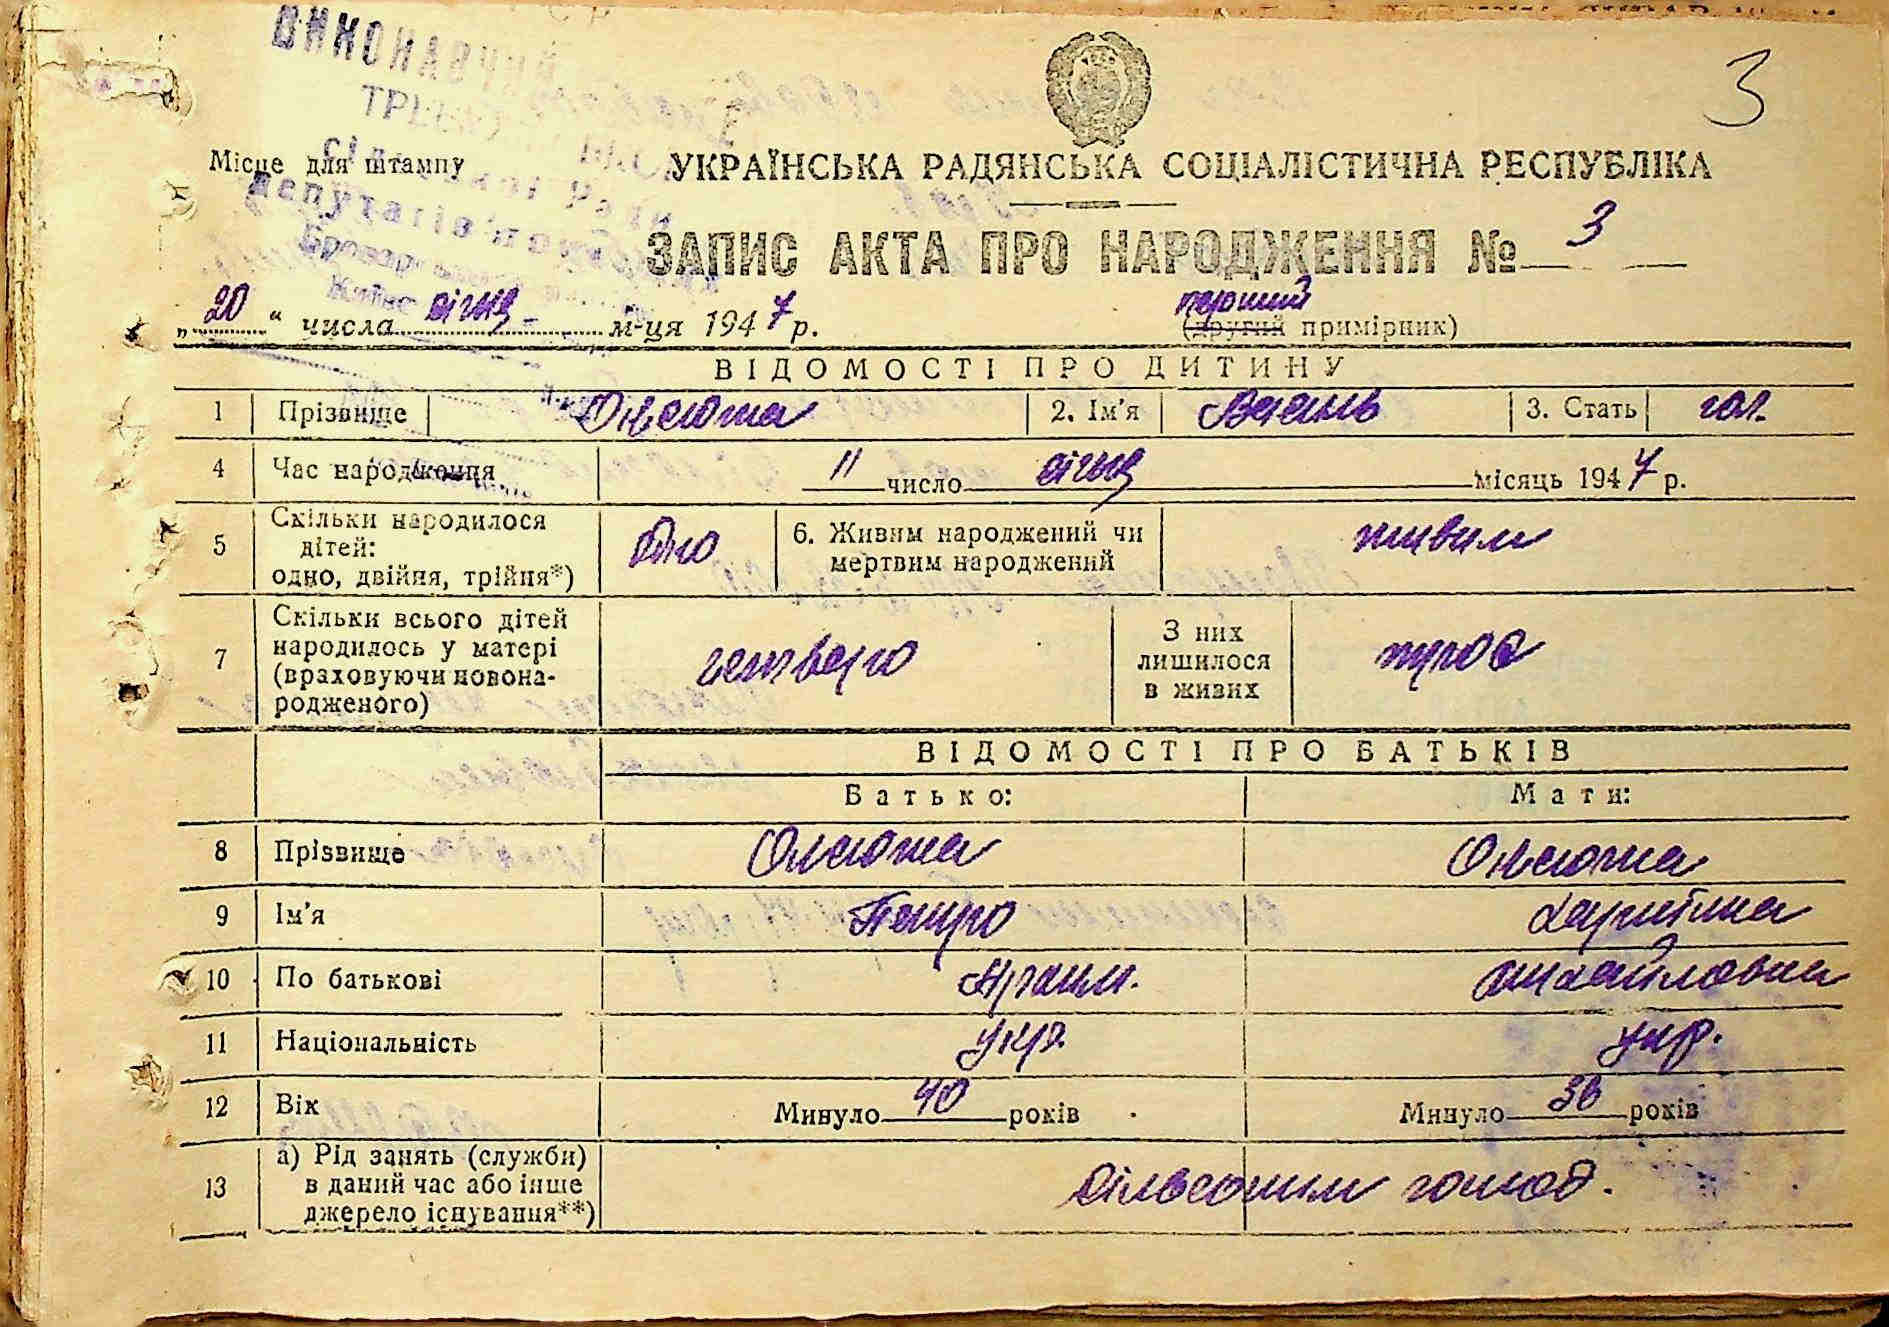 ВИКОНАВЧИЙ
3
Місце для штампу
УКРАЇНСЬКА РАДЯНСЬКА СОЦІАЛІСТИЧНА РЕСПУБЛІКА
ЗАПИС АКТА ПРО НАРОДЖЕННЯ № 3
„20" числа січня м-ця 1947 р.
перший
(другий примірник)
ВІДОМОСТІ ПРО ДИТИНУ
1 Прізвище 2. Ім'я 3. Стать чол.
4 Час народження 11 число січня місяць 1947 р.
5 Скільки народилося дітей: одно, двійня, трійня*) одно 6. Живим народжений чи мертвим народжений живим
7 Скільки всього дітей народилось у матері (враховуючи новонародженого) четверо З них лишилося в живих троє
ВІДОМОСТІ ПРО БАТЬКІВ
Батько: Мати:
8 Прізвище
9 Ім'я Петро
10 По батькові Михайловна
11 Національність укр. укр.
12 Вік Минуло 40 років Минуло 36 років
13 а) Рід занять (служби) в даний час або інше джерело існування**)